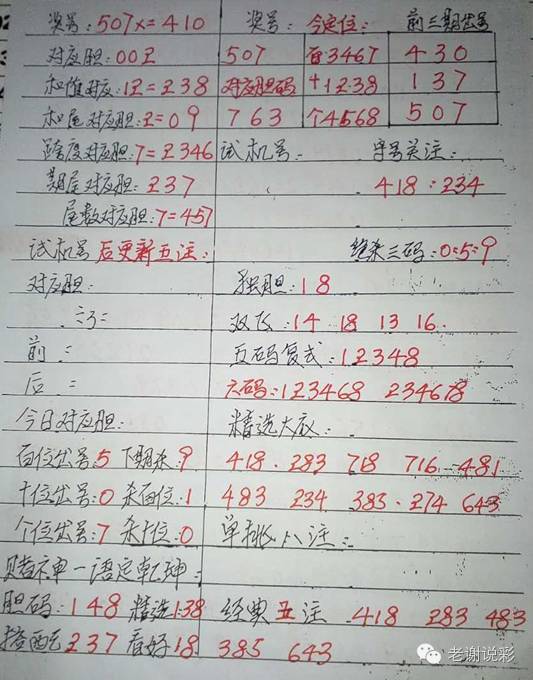 奖号:507x=410 奖号: 今定位: 前三期出号
对应胆:002 507 百3467 430
和值对应:12=238 对应胆码 十1238 137
和尾对应胆:2=09 763 个4568 507
跨度对应胆:7=2346 试机号: 字号关注:
期尾对应胆:237 418:234
尾数对应胆:7=457
试机号后更新五注: 绝杀三码:0:5:9
对应胆: 独胆:18
前: 双飞:14 18 13 16.
后: 五码复式:12348
六码:123468 234678
今日对应胆: 精选大底:
百位出号:5 下期杀:9 418. 283 718 716 481
十位出号:0 杀百位:1 483 234 383. 274 643
个位出号:7 杀十位:0 单挑八注:
赌神一语定乾坤:
胆码:148 精选138 经典五注 418 283 483
搭配237 看好18 385 643
老谢说彩